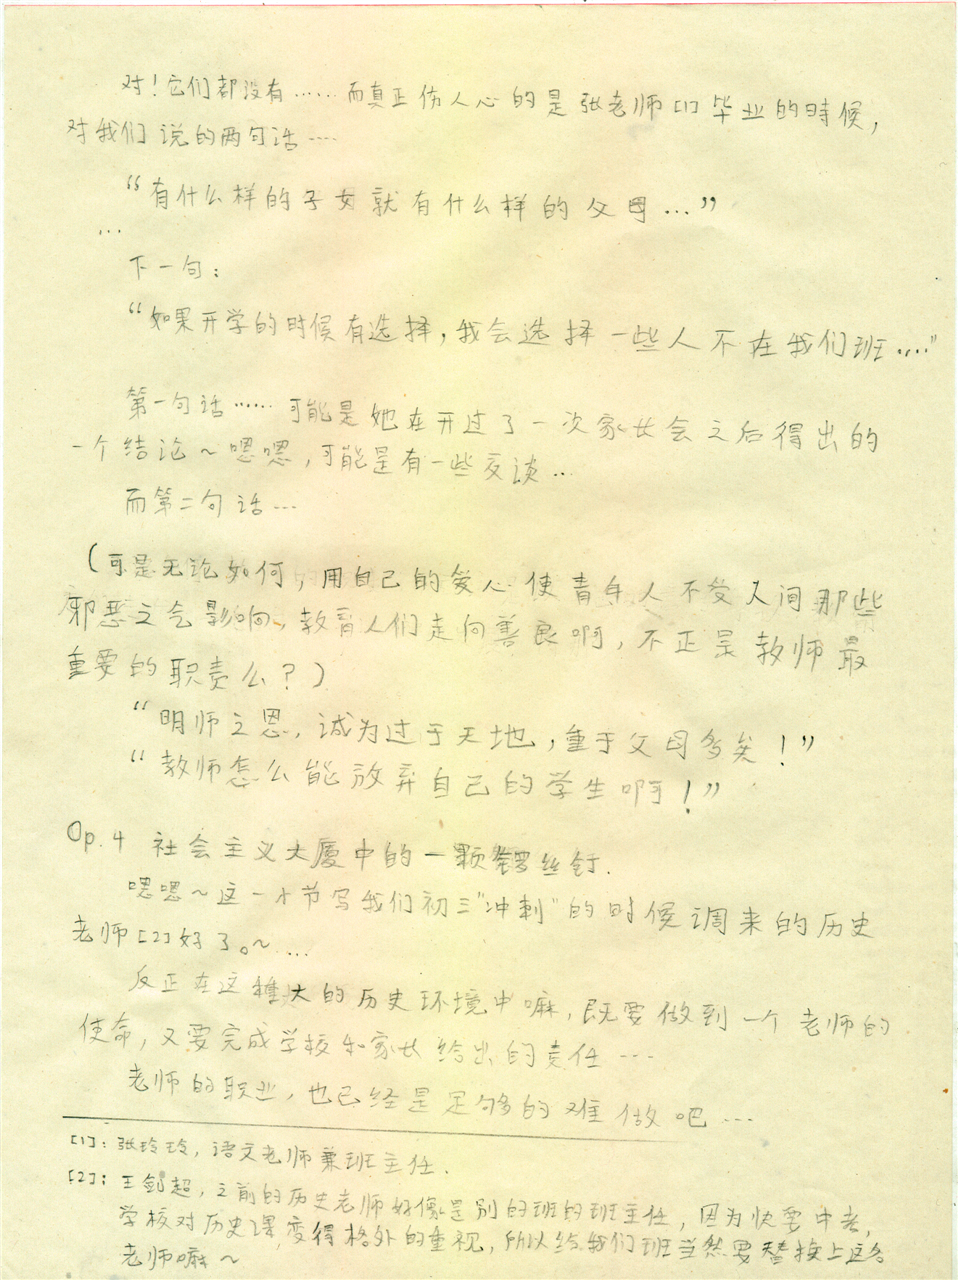 对！它们都没有……而真正伤人心的是张老师[1]毕业的時候，
对我们说的两句话……
“有什么样的子女就有什么样的父母…”
…
下一句：
“如果开学的时候有选择，我会选择一些人不在我们班……”
第一句话……可能是她在开过了一次家长会之后得出的
一个结论～嗯嗯，可能是有一些交谈…
而第二句话…
（可是无论如何，用自己的爱心使青年人不受人间那些
邪恶之气影响、教育人们走向善良啊，不正是教师最
重要的职责么？）
“明师之恩，诚为过于天地，重于父母多矣！”
“教师怎么能放弃自己的学生啊！”
Op.4 社会主义大厦中的一颗螺丝钉.
嗯嗯～这一小节写我们初三“冲刺”的时候调来的历史
老师[2]好了。～……
反正在这種大的历史环境中嘛，既要做到一个老师的
使命，又要完成学校和家长给出的责任…
老师的职业，也已经是足够的难做吧…
[1]：张玲玲，语文老师兼班主任.
[2]：王剑超，之前的历史老师好像是别的班的班主任，因为快要中考，
学校对历史课变得格外的重视，所以给我们班当然要替换上这名
老师嘛～